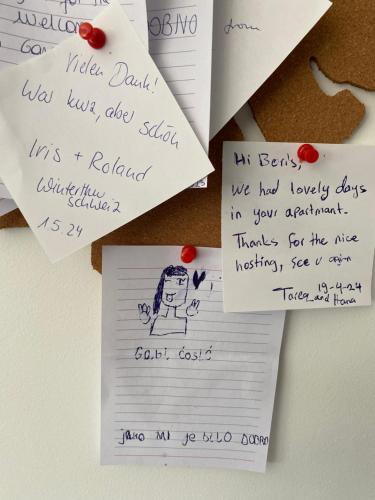 for the
welcom
DOBNO
from
Vielen Dank!
War kurz, aber schön
Iris + Roland
Winterthur
Schweiz
1.5.24
Hi Boris,
We had lovely days
in your apartmant.
Thanks for the nice
hosting, see u again
19-4-24
Tareq and Hana
Gabi Ćosić
jako mi je bilo DOBRO